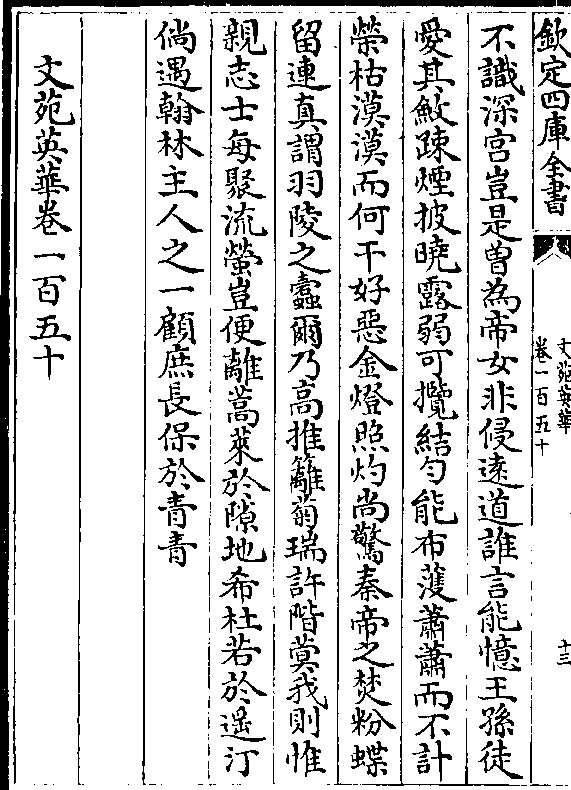 欽定四庫全書
文苑英華
卷一百五十
十三
不識深宫豈是曾為帝女非侵遠道誰言能憶王孫徒
愛其敏疎煙披曉露弱可攬結勻能布濩蕭蕭而不計
榮枯漠漠而何干好惡金燈照灼尚驚秦帝之焚粉蝶
留連真謂羽陵之蠧爾乃高推籬菊瑞許階蓂我則惟
親志士每聚流螢豈便離蒿萊於隙地希杜若於遥汀
倘遇翰林主人之一顧庶長保於青青
文苑英華卷一百五十